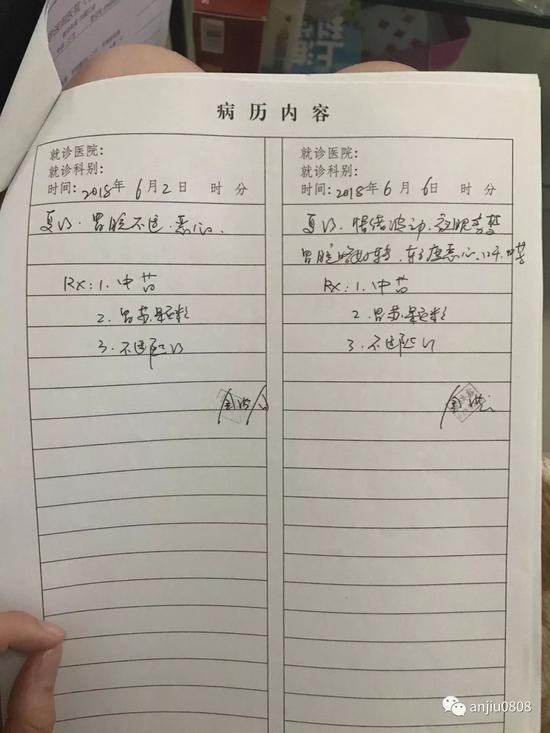 病历内容
就诊医院:
就诊科别:
时间: 2018年 6月2日 时 分
复诊. 胃脘不适. 恶心.
Rx: 1. 中药
2. 胃苏颗粒
3. 不适随诊
就诊医院:
就诊科别:
时间: 2018年 6月 6日 时 分
复诊. 情绪波动. 夜眠
胃脘 好转. 恶心.
Rx: 1. 中药
2. 胃苏颗粒
3. 不适随诊
anjiu0808